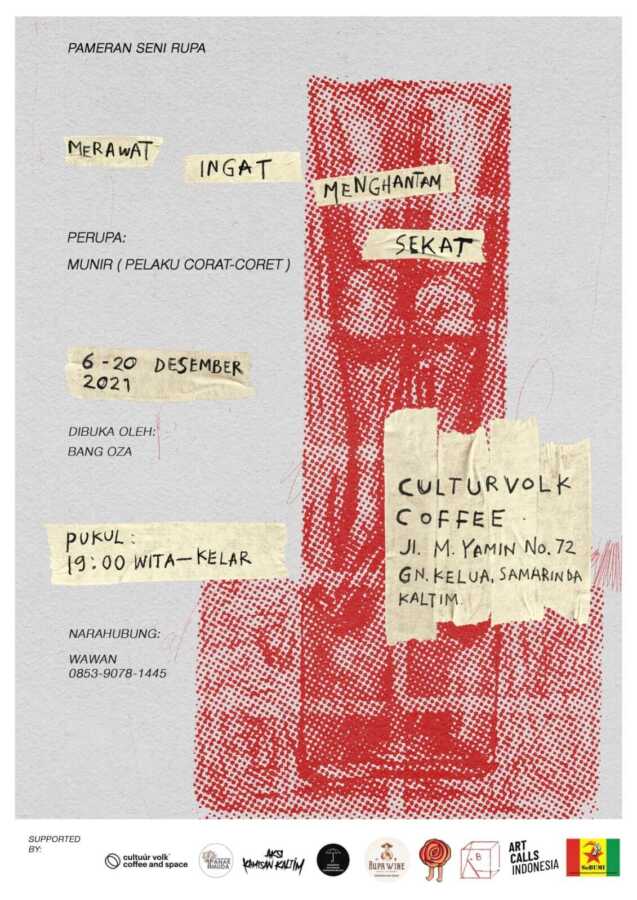 PAMERAN SENI RUPA
MERAWAT
INGAT
MENGHANTAM
SEKAT
PERUPA:
MUNIR ( PELAKU CORAT-CORET )
6-20 DESEMBER
2021
DIBUKA OLEH:
BANG OZA
CULTURVOLK
COFFEE.
Jl. M. YAMIN No. 72
GN. KELUA, SAMARINDA
KALTIM.
PUKUL:
19:00 WITA-KELAR
NARAHUBUNG:
WAWAN
0853-9078-1445
SUPPORTED
BY:
cultuúr volk
coffee and space
AKSI
KAMISAN KALTIM
RUPA WINE
R.B
ART
CALLS
INDONESIA
SeBUMI